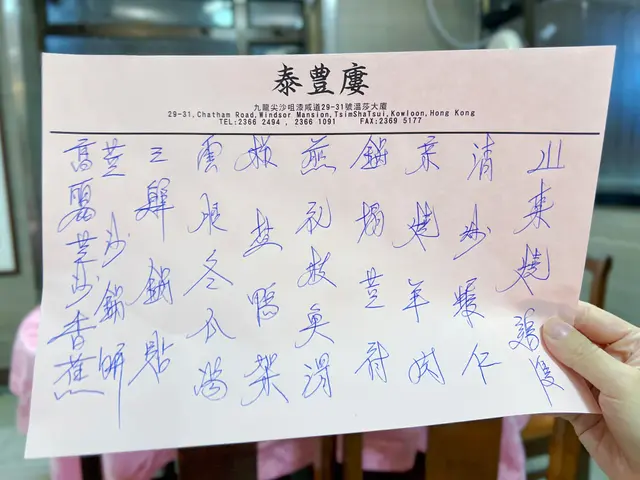 泰豐廔
九龍尖沙咀漆咸道29-31號溫莎大廈
29-31,Chatham Road,Windsor Mansion,TsimShaTsui,Kowloon,Hong Kong
TEL:2366 2494 , 2366 1091 FAX:2369 5177
山东燒鷄
清炒蝦仁
京燒羊肉
鍋塌荳付
魚滑
鴨架
雲腿冬瓜湯
三鮮鍋貼
荳沙鍋餅
高麗荳沙香蕉